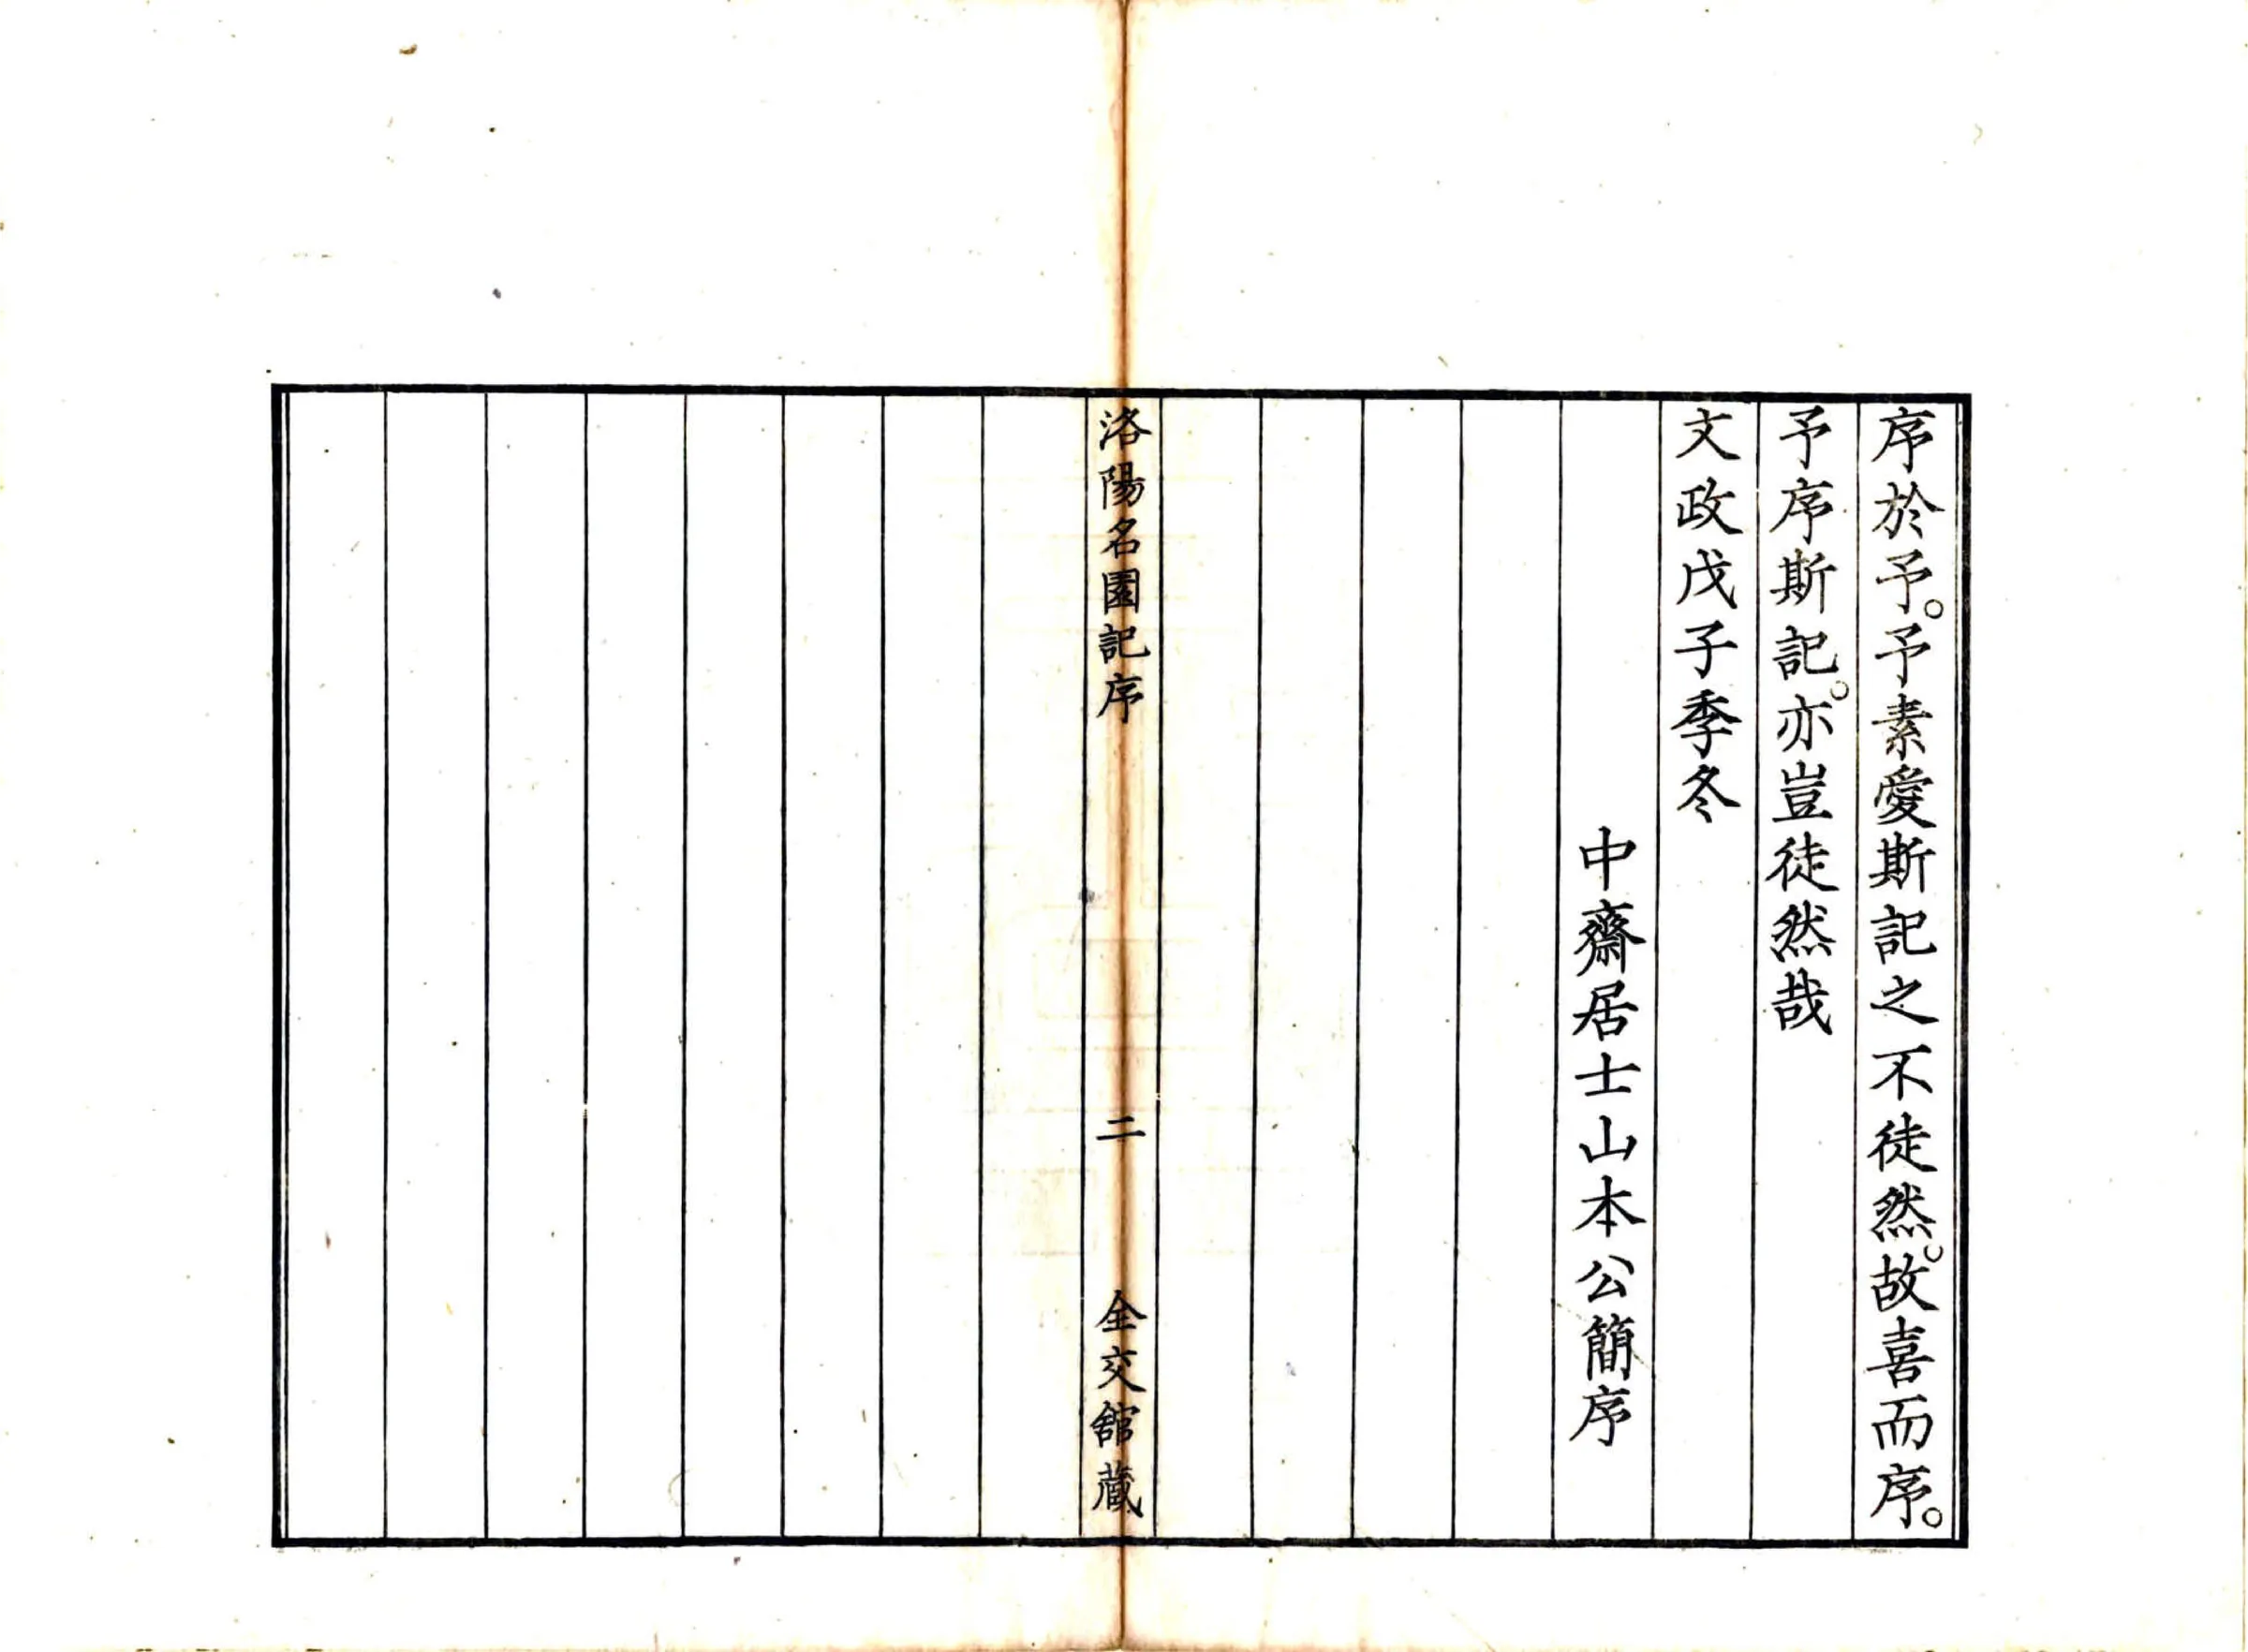 序於予。予素愛斯記之不徒然。故喜而序。
予序斯記。亦豈徒然哉
文政戊子季冬
中齋居士山本公簡序
洛陽名園記序
二
全交舘藏